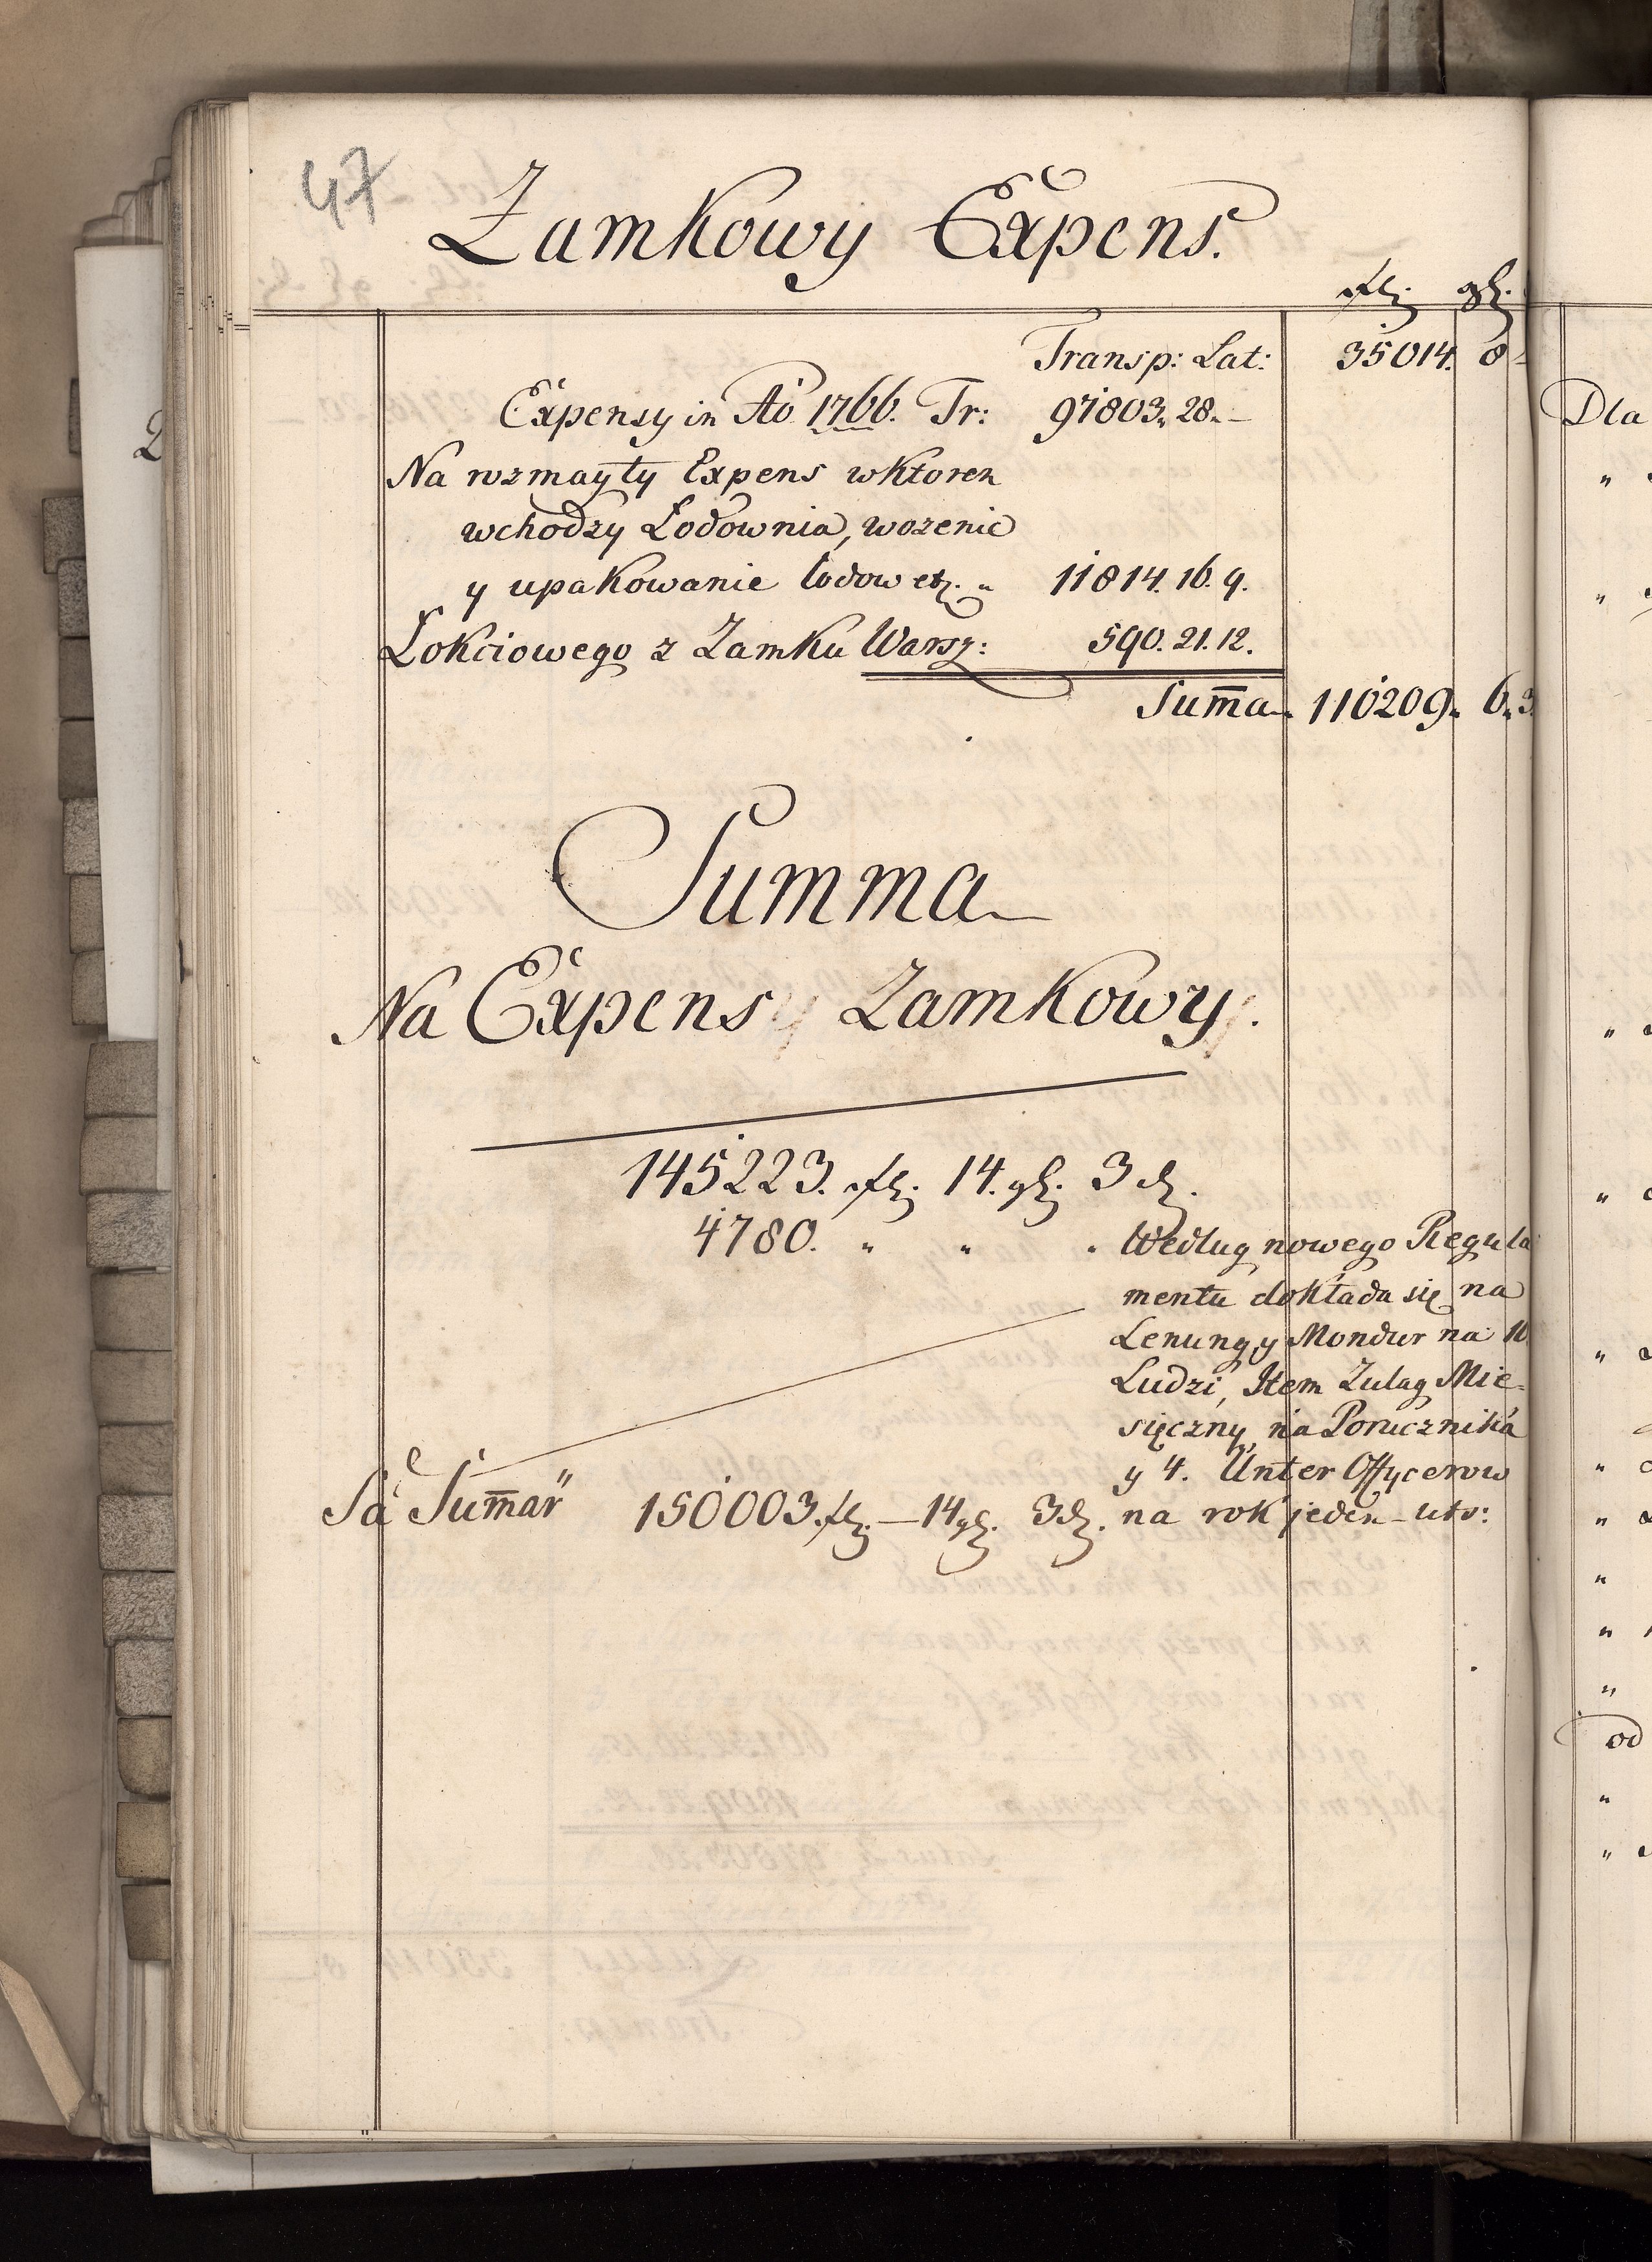 47
Zamkowy Expens.
fl: gl:
Transp: Lat: 35014. 8
Expensy in Ao 1766. Tr: 97803. 28. –
Na rozmayty Expens wktoren
wchodzy Lodownia, wozenie
y upakowanie lodow etz. „ 11814. 16. 9.
Lokciowego z Zamku Warsz: 590. 21. 12.
Sum̄a. 110209. 6. 3
Summa
Na Expens Zamkowy.
145223. fl: 14. gl: 3 d.
4780. „ „ „ Wedlug nowego Regula
mentu dokłada się na
Lenung y Mondur na 10
Ludzi, Item Zulag Mie-
sięczny na Porucznika
y 4. Unter Offycerow
Sa Sum̄ar 150003. fl: – 14 gl: 3 d. na rok jeden – uts:
2
Dla
od